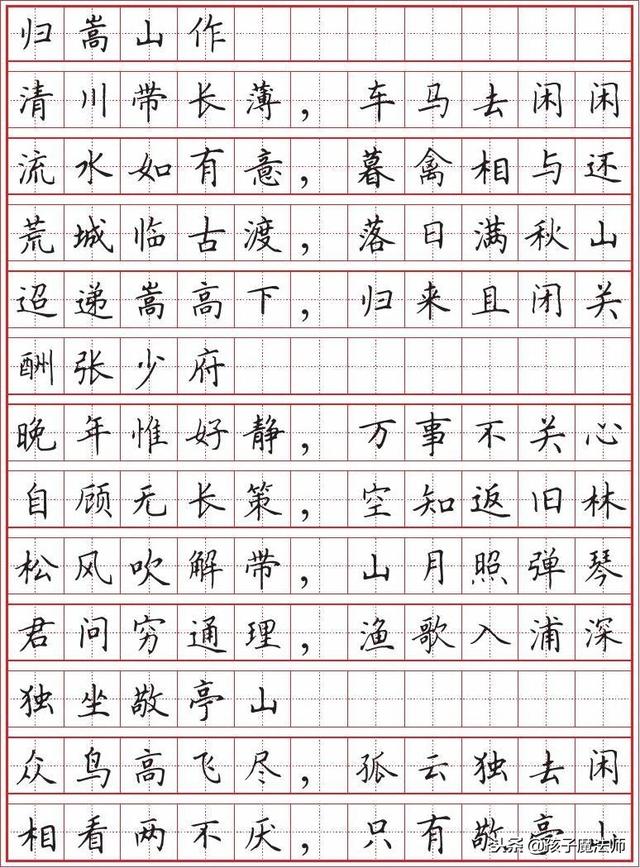 归嵩山作
清川带长薄，车马去闲闲
流水如有意，暮禽相与还
荒城临古渡，落日满秋山
迢递嵩高下，归来且闭关
酬张少府
晚年惟好静，万事不关心
自顾无长策，空知返旧林
松风吹解带，山月照弹琴
君问穷通理，渔歌入浦深
独坐敬亭山
众鸟高飞尽，孤云独去闲
相看两不厌，只有敬亭山
头条@孩子魔法师